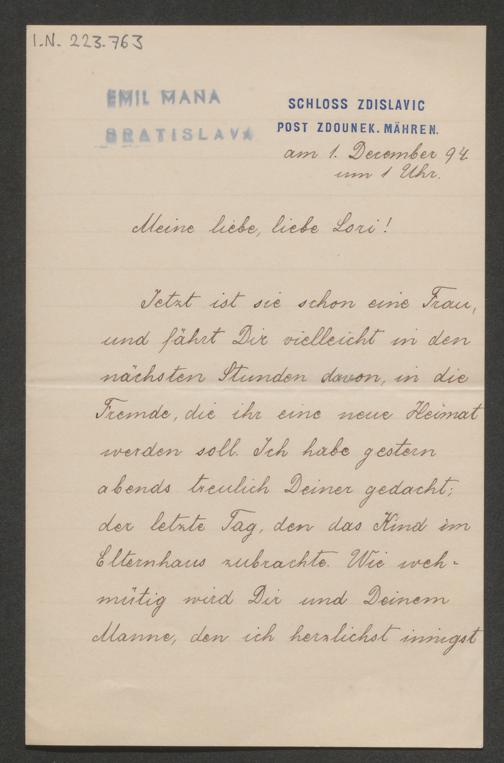 I.N. 223.763
EMIL MANA
BRATISLAVA
SCHLOSS ZDISLAVIC
POST ZDOUNEK. MÄHREN.
am 1. December 94.
um 1 Uhr.
Meine liebe, liebe Lori!
Jetzt ist sie schon eine Frau,
und fährt Dir vielleicht in den
nächsten Stunden davon, in die
Fremde, die ihr eine neue Heimat
werden soll. Ich habe gestern
abends treulich Deiner gedacht;
der letzte Tag, den das Kind im
Elternhaus zubrachte. Wie weh-
mütig wird Dir und Deinem
Manne, den ich herzlichst innigst